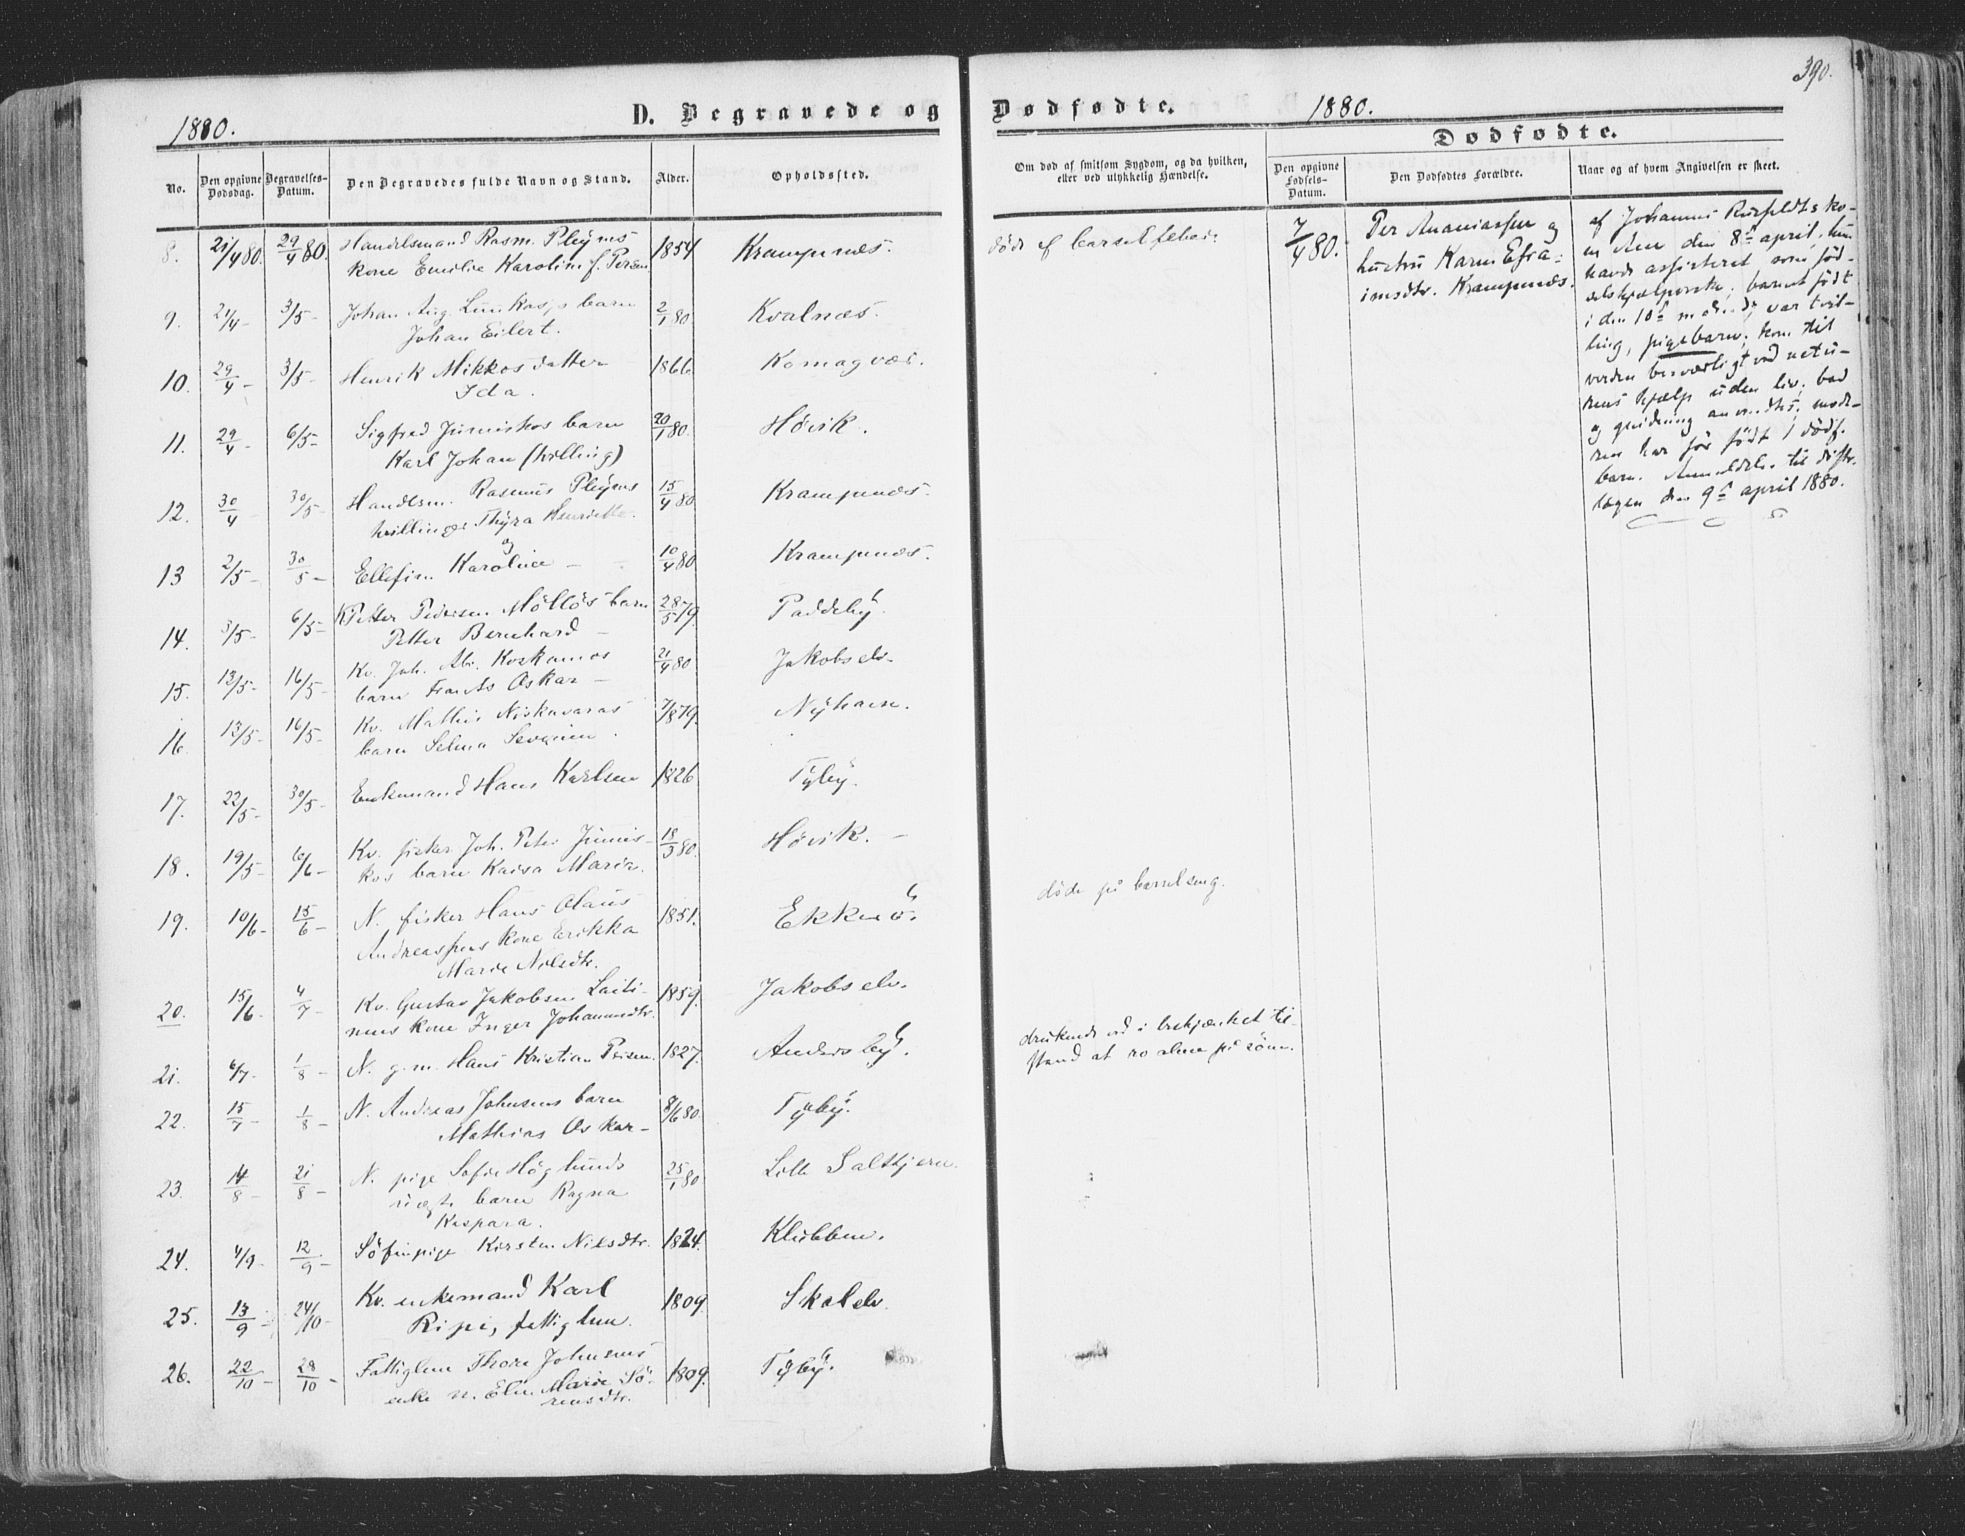 390.
1880.
D. Begravede og Dødfødte.
1880.
Dødfødte.
No.
Den opgivne Dødsdag.
Begravelses-Datum.
Den Begravedes fulde Navn og Stand.
Alder.
Opholdssted.
Om død af smitsom Sygdom, og da hvilken,
eller ved ulykkelig Hændelse.
Den opgivne Fødsels-Datum.
Den Dødfødtes Forældre.
Naar og af hvem Angivelsen er skeet.
8. 21/4 80. 29/4 80. Handelsmand Rasm. Pleyms 1854 Krampenæs. døde af barselfeber.
kone Emilie Karoline f.
9. 21/4 - 3/5 - Johan Aug. barn 2/1 80 Kvalnæs.
Johan Eilert.
10. 29/4 - 3/5 - Henrik Mikkos datter 1866 Komagvær.
Ida.
11. 29/4 - 6/5 - Sigfred Juniskos barn 20/1 80. Høvik.
Karl Johan (tvilling)
12. 30/4 30/5 - Handelsm. Rasmus Pleyms 15/4 80 Krampenæs.
tvillinger Thyra Henriette
og
13 2/5 - 30/5 - Karoline - 10/4 80 Krampenæs.
14. 3/5 - 6/5 - Petter Pedersen barn 28/5 79. Paddeby.
Petter Bernhard -
15. 13/5 - 16/5 - Kv. Joh. Abr. Koskamos 21/4 80. Jakobselv.
barn Frants Oskar -
16. 13/5 - 16/5 - Kv. Mathis Niskavaras 7/8 79. Nyhavn.
barn Selma
17. 22/5 - 30/5 - Enkemand Hans Karlsen 1826 Tyby.
18. 19/5 - 6/6 - Kv. fisker Joh. Peter Junis- 18/3 80. Høvik. -
kos barn Kaisa Maria.
19. 10/6 - 15/6 - N. fisker Hans Olaus 1851. Ekkerö. døde på barselseng.
Andreassens kone Erikka
Marie Nilsdtr.
20. 15/6 - 4/7 - Kv. Gustav Jakobsen Laiti- 1859. Jakobselv.
nens kone Inger Johannesdtr.
21. 6/7 - 1/8 - N. g.m. Hans Kristian 1827. Andersby. druknede ved i beskjænket til-
stand at ro alene på søen.
22. 15/7 - 1/8 - N. Andreas Johnsens barn 8/6 80. Tyby.
Mathias Oskar -
23. 14/8 - 21/8 - N. pige Sofie Höglunds 25/1 80 Lille Saltkjern.
uægte barn Ragna
Kaspara.
24. 4/9 - 12/9 - Söfinpige Kirsten Nilsdtr. 1824. Klubben.
25. 13/9 - 24/10 - Kv. enkemand Karl 1809. Skalelv.
Ripi, fattiglem.
26. 22/10 - 28/10 - Fattiglem Thore Johnsens 1809. Tyby.
enke n. Marie Sö-
rensdtr.
7/4 80. Per Ananiassen og
hustru Karen Efra-
imsdtr. Krampenæs.
af Johannes ko-
ne den 8de april, hun
havde assisteret som fød-
selshjælperske; barnet født
i den 10de måned, var tvil-
ling, pigebarn; kom til
verden besværligt ved natu-
rens hjælp uden liv; bad
og gnidning anvendtes; mode-
ren har før født 1 dødf.
barn. Anmeldelse til distr.
lægen den 9de april 1880.